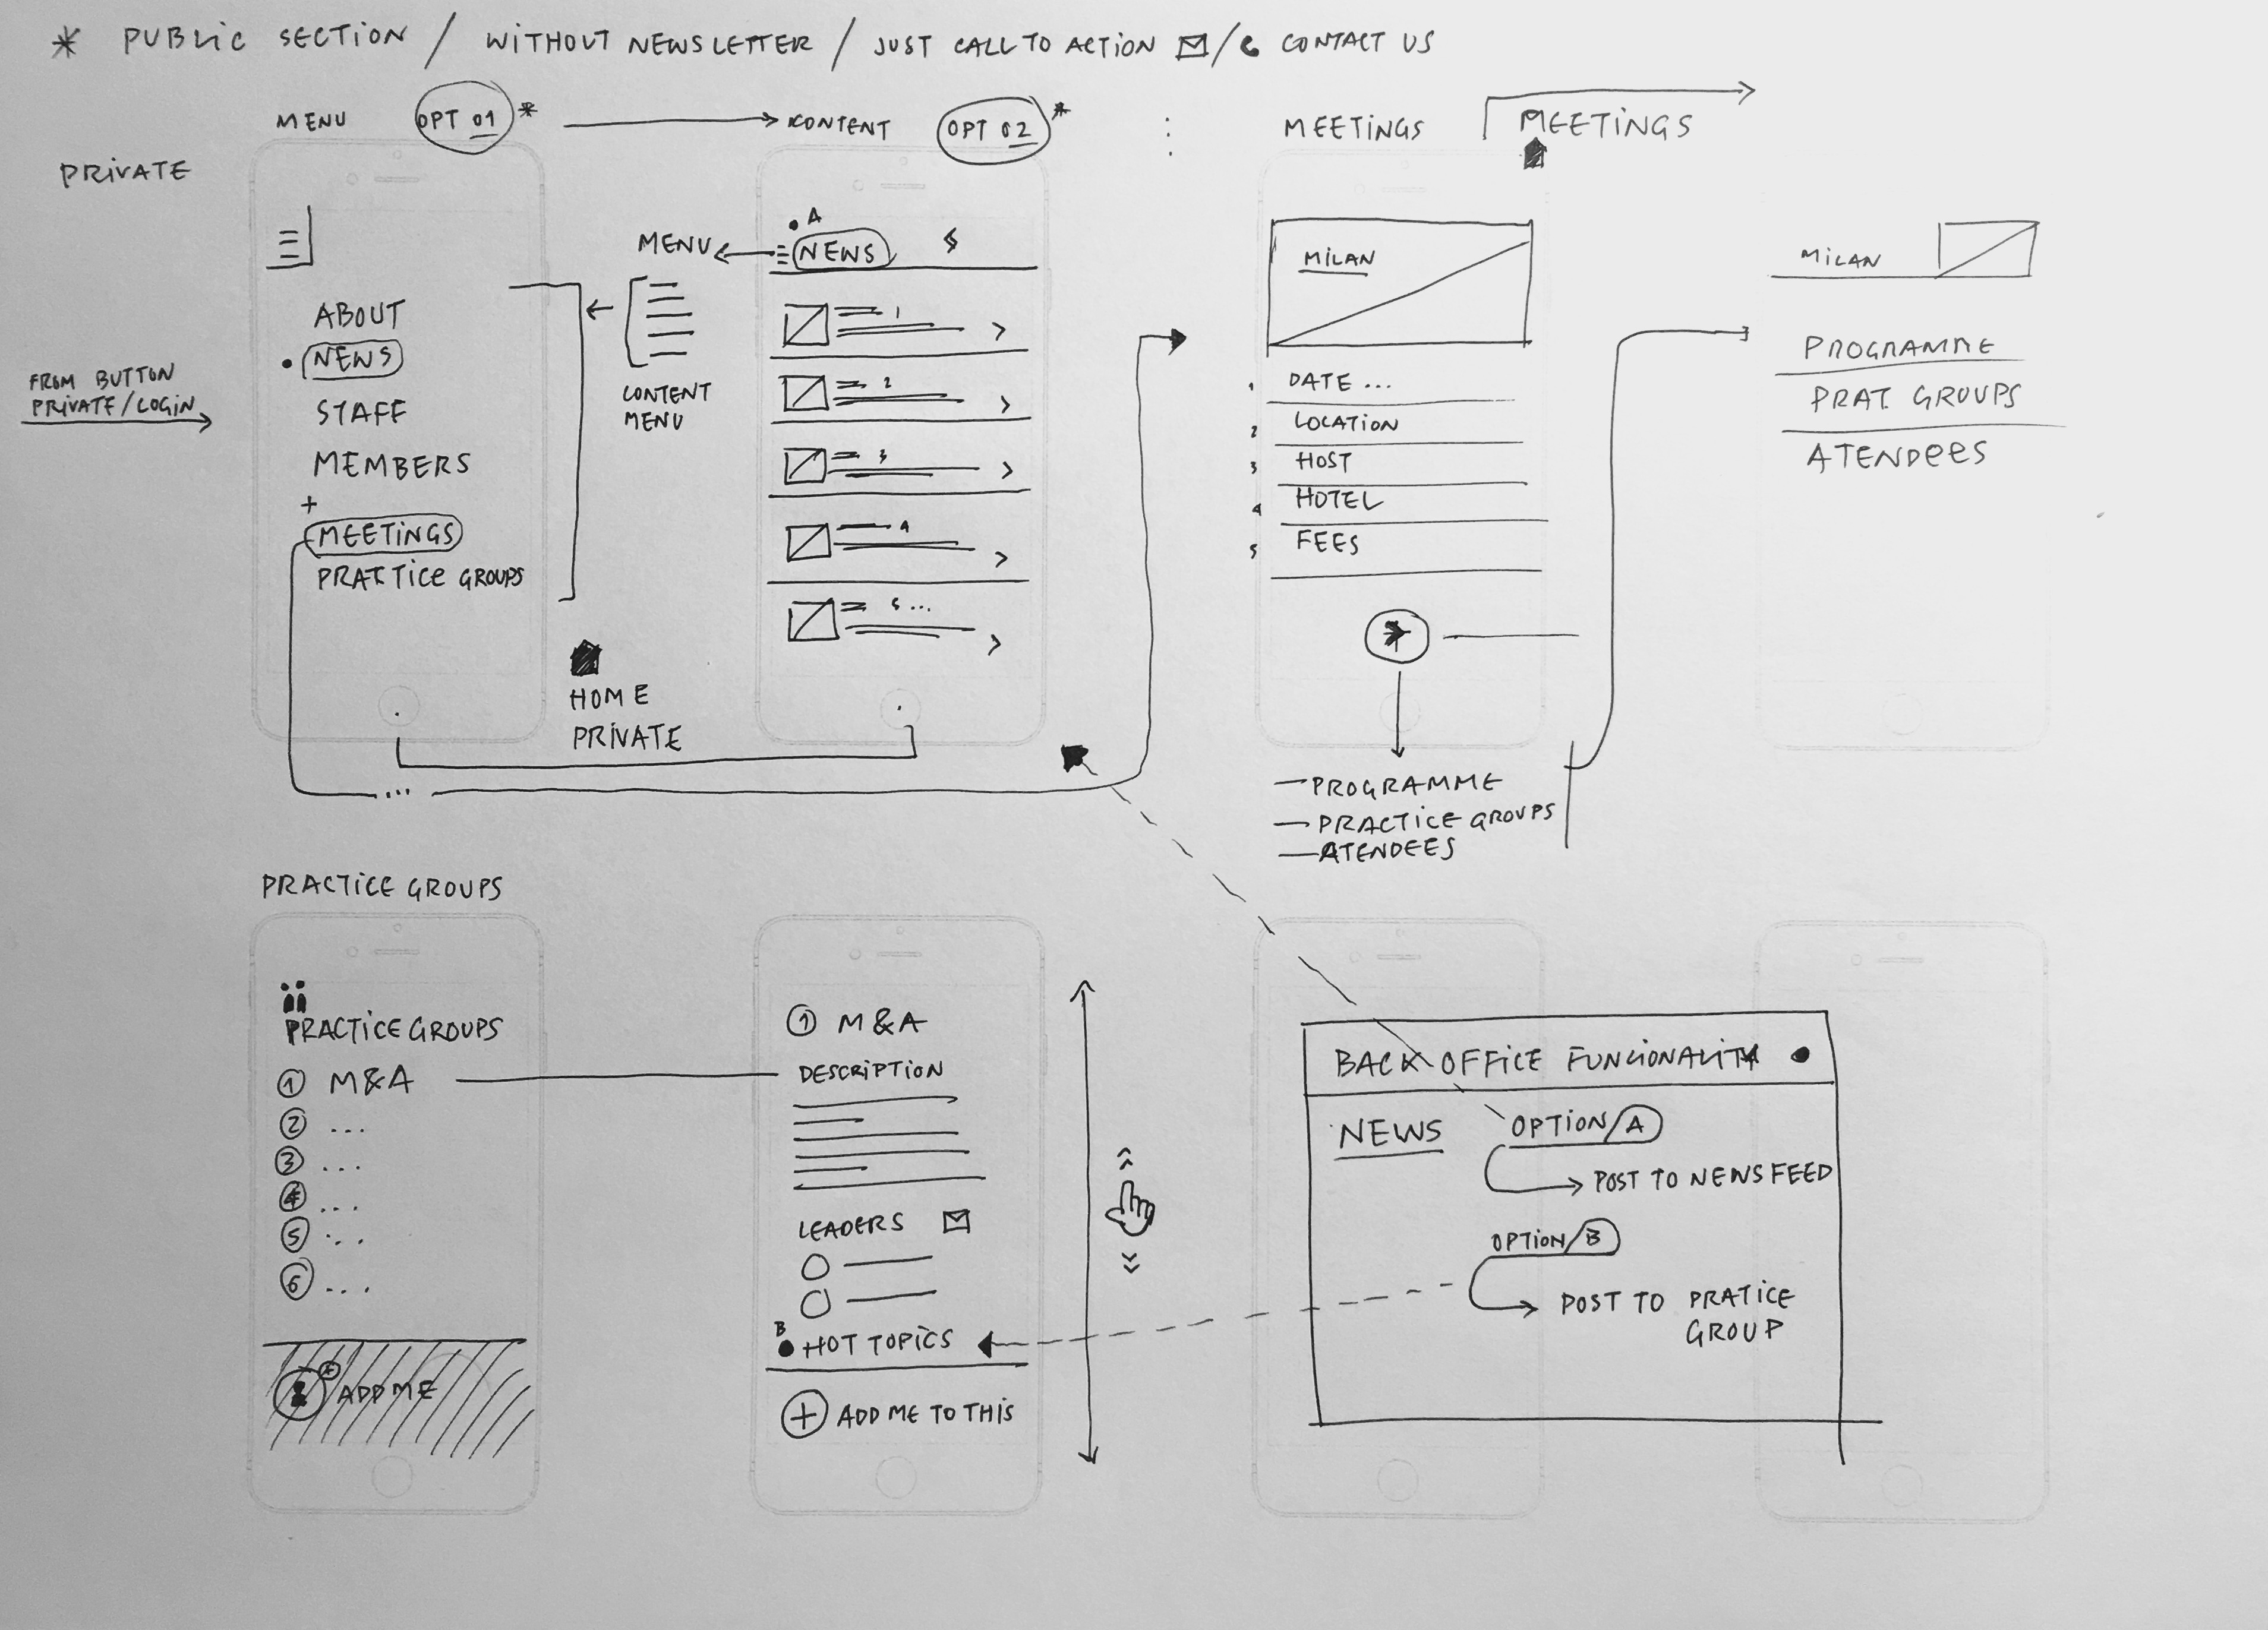 * PUBLIC SECTION / WITHOUT NEWSLETTER / JUST CALL TO ACTION / CONTACT US
MENU OPT 01 * CONTENT OPT 02 * MEETINGS MEETINGS
PRIVATE
FROM BUTTON
PRIVATE/LOGIN
ABOUT
NEWS
STAFF
MEMBERS
+
MEETINGS
PRATICE GROUPS
MENU
CONTENT
MENU
HOME
PRIVATE
A
NEWS
1
2
3
4
5 ...
MILAN
1 DATE ...
2 LOCATION
3 HOST
4 HOTEL
5 FEES
– PROGRAMME
– PRACTICE GROUPS
– ATENDEES
MILAN
PROGRAMME
PRAT. GROUPS
ATENDEES
...
PRACTICE GROUPS
PRACTICE GROUPS
1 M&A
2 ...
3 ...
4 ...
5 ...
6 ...
ADD ME
1 M&A
DESCRIPTION
LEADERS
B
HOT TOPICS
+ ADD ME TO THIS
BACK OFFICE FUNCIONALITY
NEWS OPTION/A
POST TO NEWSFEED
OPTION/B
POST TO PRATICE
GROUP